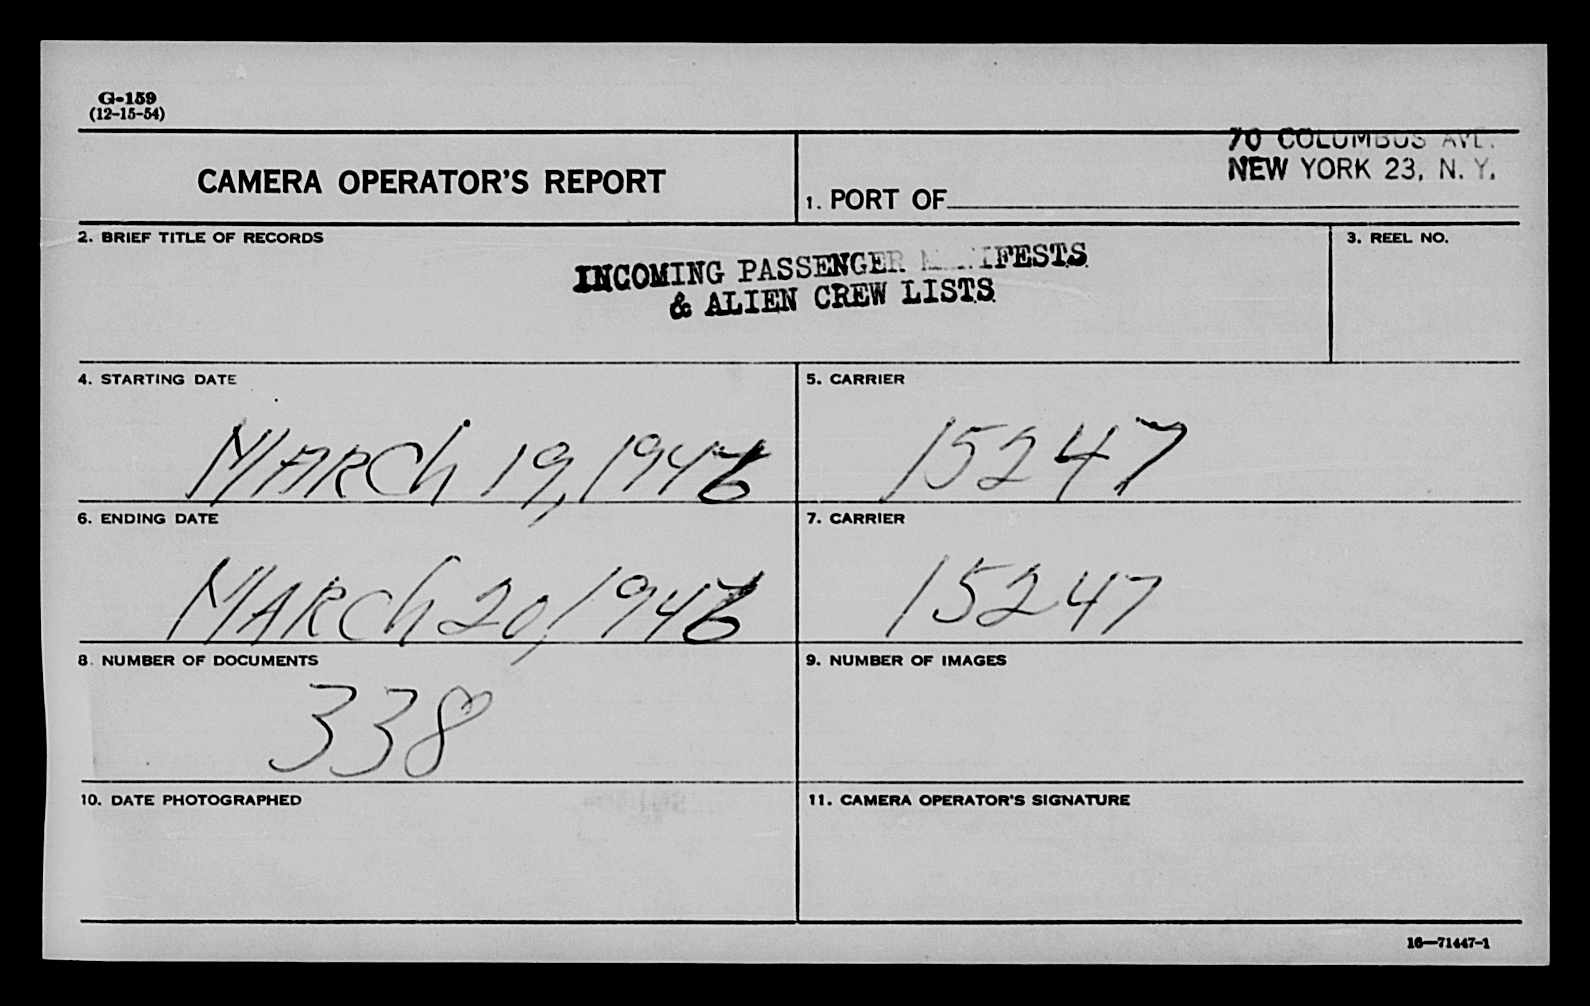 G-159
(12-15-54)
CAMERA OPERATOR'S REPORT
70 COLUMBUS AVE.
NEW YORK 23, N. Y.
1. PORT OF
2. BRIEF TITLE OF RECORDS
INCOMING PASSENGER MANIFESTS
& ALIEN CREW LISTS
3. REEL NO.
4. STARTING DATE
MARCh 19, 1946
5. CARRIER
15247
6. ENDING DATE
MARCh 20, 1946
7. CARRIER
15247
8. NUMBER OF DOCUMENTS
338
9. NUMBER OF IMAGES
10. DATE PHOTOGRAPHED
11. CAMERA OPERATOR'S SIGNATURE
16—71447-1